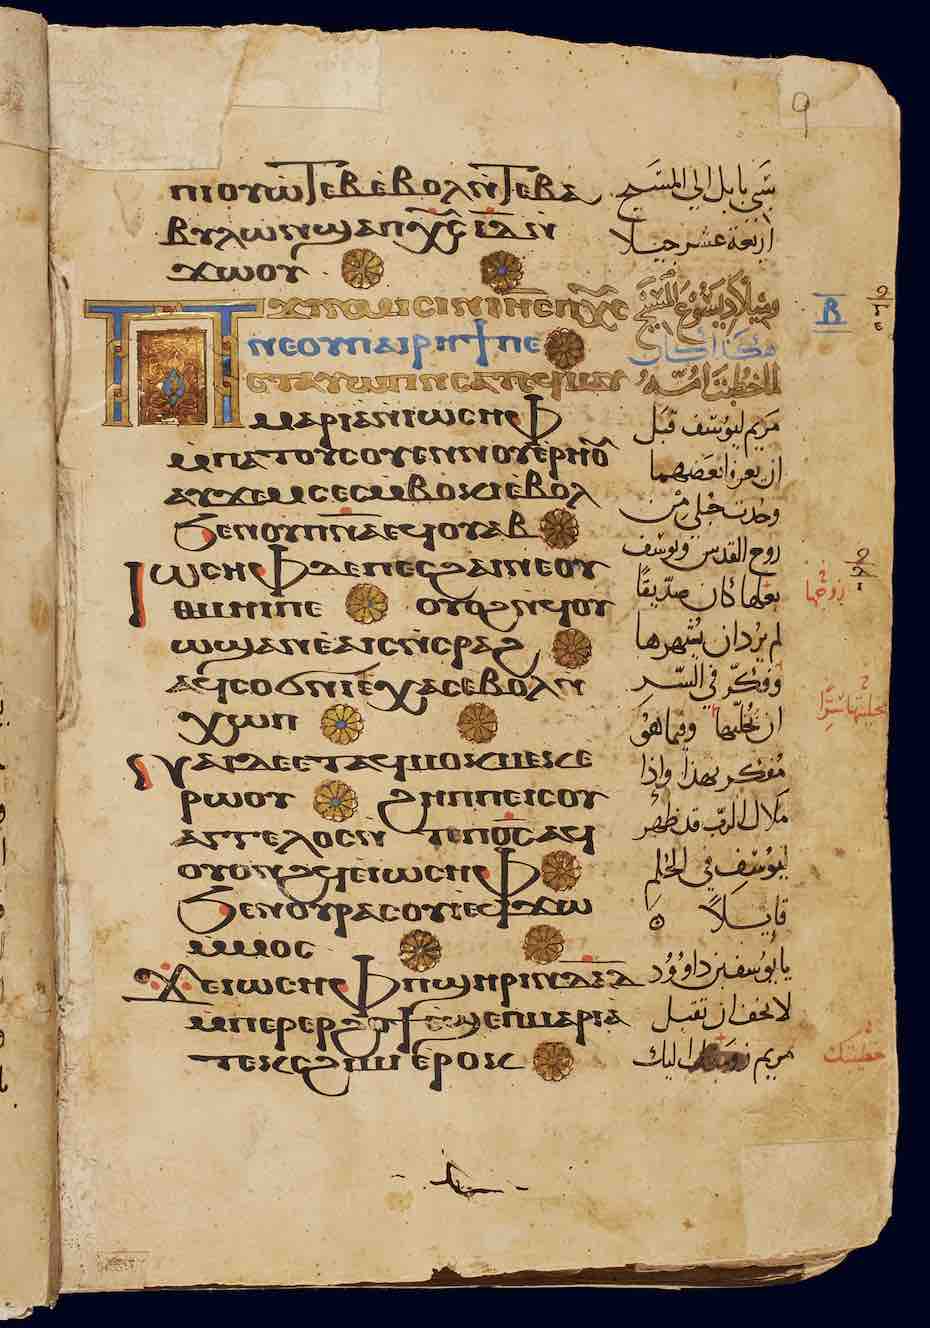 ⲡⲓⲟⲩⲱⲧⲉⲃⲉⲃⲟⲗⲛ̀ⲧⲉⲃⲁ
ⲃⲩⲗⲱⲛϣⲁⲡⲭ̅ⲥ̅ⲓ̅ⲇ̅ⲛ̀
ϫⲱⲟⲩ
ⲡϫⲓⲛⲙⲓⲥⲓⲛⲓⲏ̅ⲥ̅ⲡⲭ̅ⲥ̅
ⲛⲉⲟⲩⲡⲁⲓⲣⲏϯⲡⲉ
ⲉⲧⲁⲩⲱⲡⲛⲥⲁⲧⲉϥⲙⲁⲩ
ⲙⲁⲣⲓⲁⲛⲓⲱⲥⲏⲫ
ⲙⲡⲁⲧⲟⲩⲥⲟⲩⲉⲛⲛⲟⲩⲉⲣⲏⲟⲩ
ⲁⲩϫⲉⲙⲥⲉⲥⲙⲃⲟⲕⲓⲉⲃⲟⲗ
ϧⲉⲛⲟⲩⲡ̅ⲛ̅ⲁ̅ⲉϥⲟⲩⲁⲃ
ⲓⲱⲥⲏⲫⲇⲉⲡⲉⲥϩⲁⲓⲛⲉⲟⲩ
ⲑⲙⲏⲓⲡⲉ ⲟⲩⲟϩⲛⲉϥⲟⲩ
ⲱϣⲁⲛⲉⲁⲓⲥⲛⲥⲣⲁϩ
ⲁϥⲥⲟϭⲛⲓⲉⲭⲁⲥⲉⲃⲟⲗⲛ̀
ⲭⲱⲡ
ⲛⲁⲓⲇⲉⲉⲧⲁϥⲙⲟⲕⲙⲉⲕⲉ
ⲣⲱⲟⲩ ϩⲏⲡⲡⲉⲓⲥⲟⲩ
ⲁⲅⲅⲉⲗⲟⲥⲛ̀ ⲧⲉⲡⲟ̅ⲥ̅ⲁϥ
ⲟⲩⲟⲛϩϥⲉⲓⲱⲥⲏⲫ
ϧⲉⲛⲟⲩⲣⲁⲥⲟⲩⲓⲉϥϫⲱ
ⲙⲙⲟⲥ
ϫⲉⲓⲱⲥⲏⲫⲡϣⲏⲣⲓⲛⲇ̅ⲁ̅ⲇ̅
ⲙⲡⲉⲣⲉⲣϩⲟϯⲉϣⲉⲡⲙⲁⲣⲓⲁ
ⲧⲉⲕⲥϩⲓⲙⲓⲉⲣⲟⲕ
سبي بابل الي المسيح
اربعة عشر جيلا
ميلاد يشوع المسيح
هكذا كان
لما خطبت امه
مريم ليوسف قبل
ان يعرفا بعضهما
وجدت حبلي من
روح القدس ويوسف
بعلها كان صديقا
لم يرد ان يشهرها
وفكر في السر
ان يخليها وفيما هو
مفكر بهذا واذا
ملاك الرب قد ظهر
ليوسف في الحلم
قايلا ه
يا يوسف بن داوود
لا تخف ان تقبل
مريم اليك
ⲃ
زوجها
خطيبتك